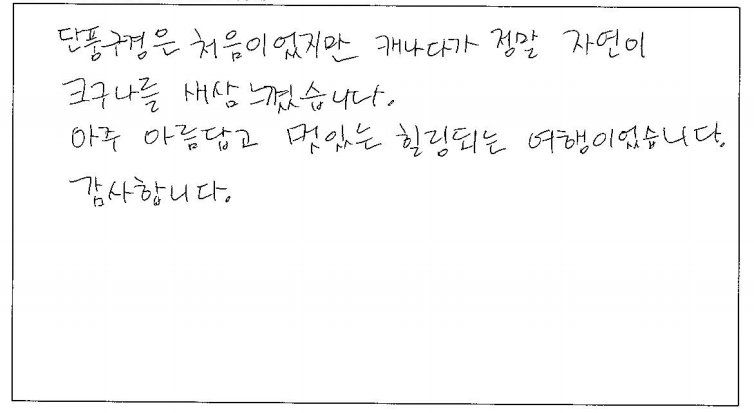 단풍구경은 처음이었지만 캐나다가 정말 자연이
크구나를 새삼 느꼈습니다.
아주 아름답고 멋있는 힐링되는 여행이었습니다.
감사합니다.